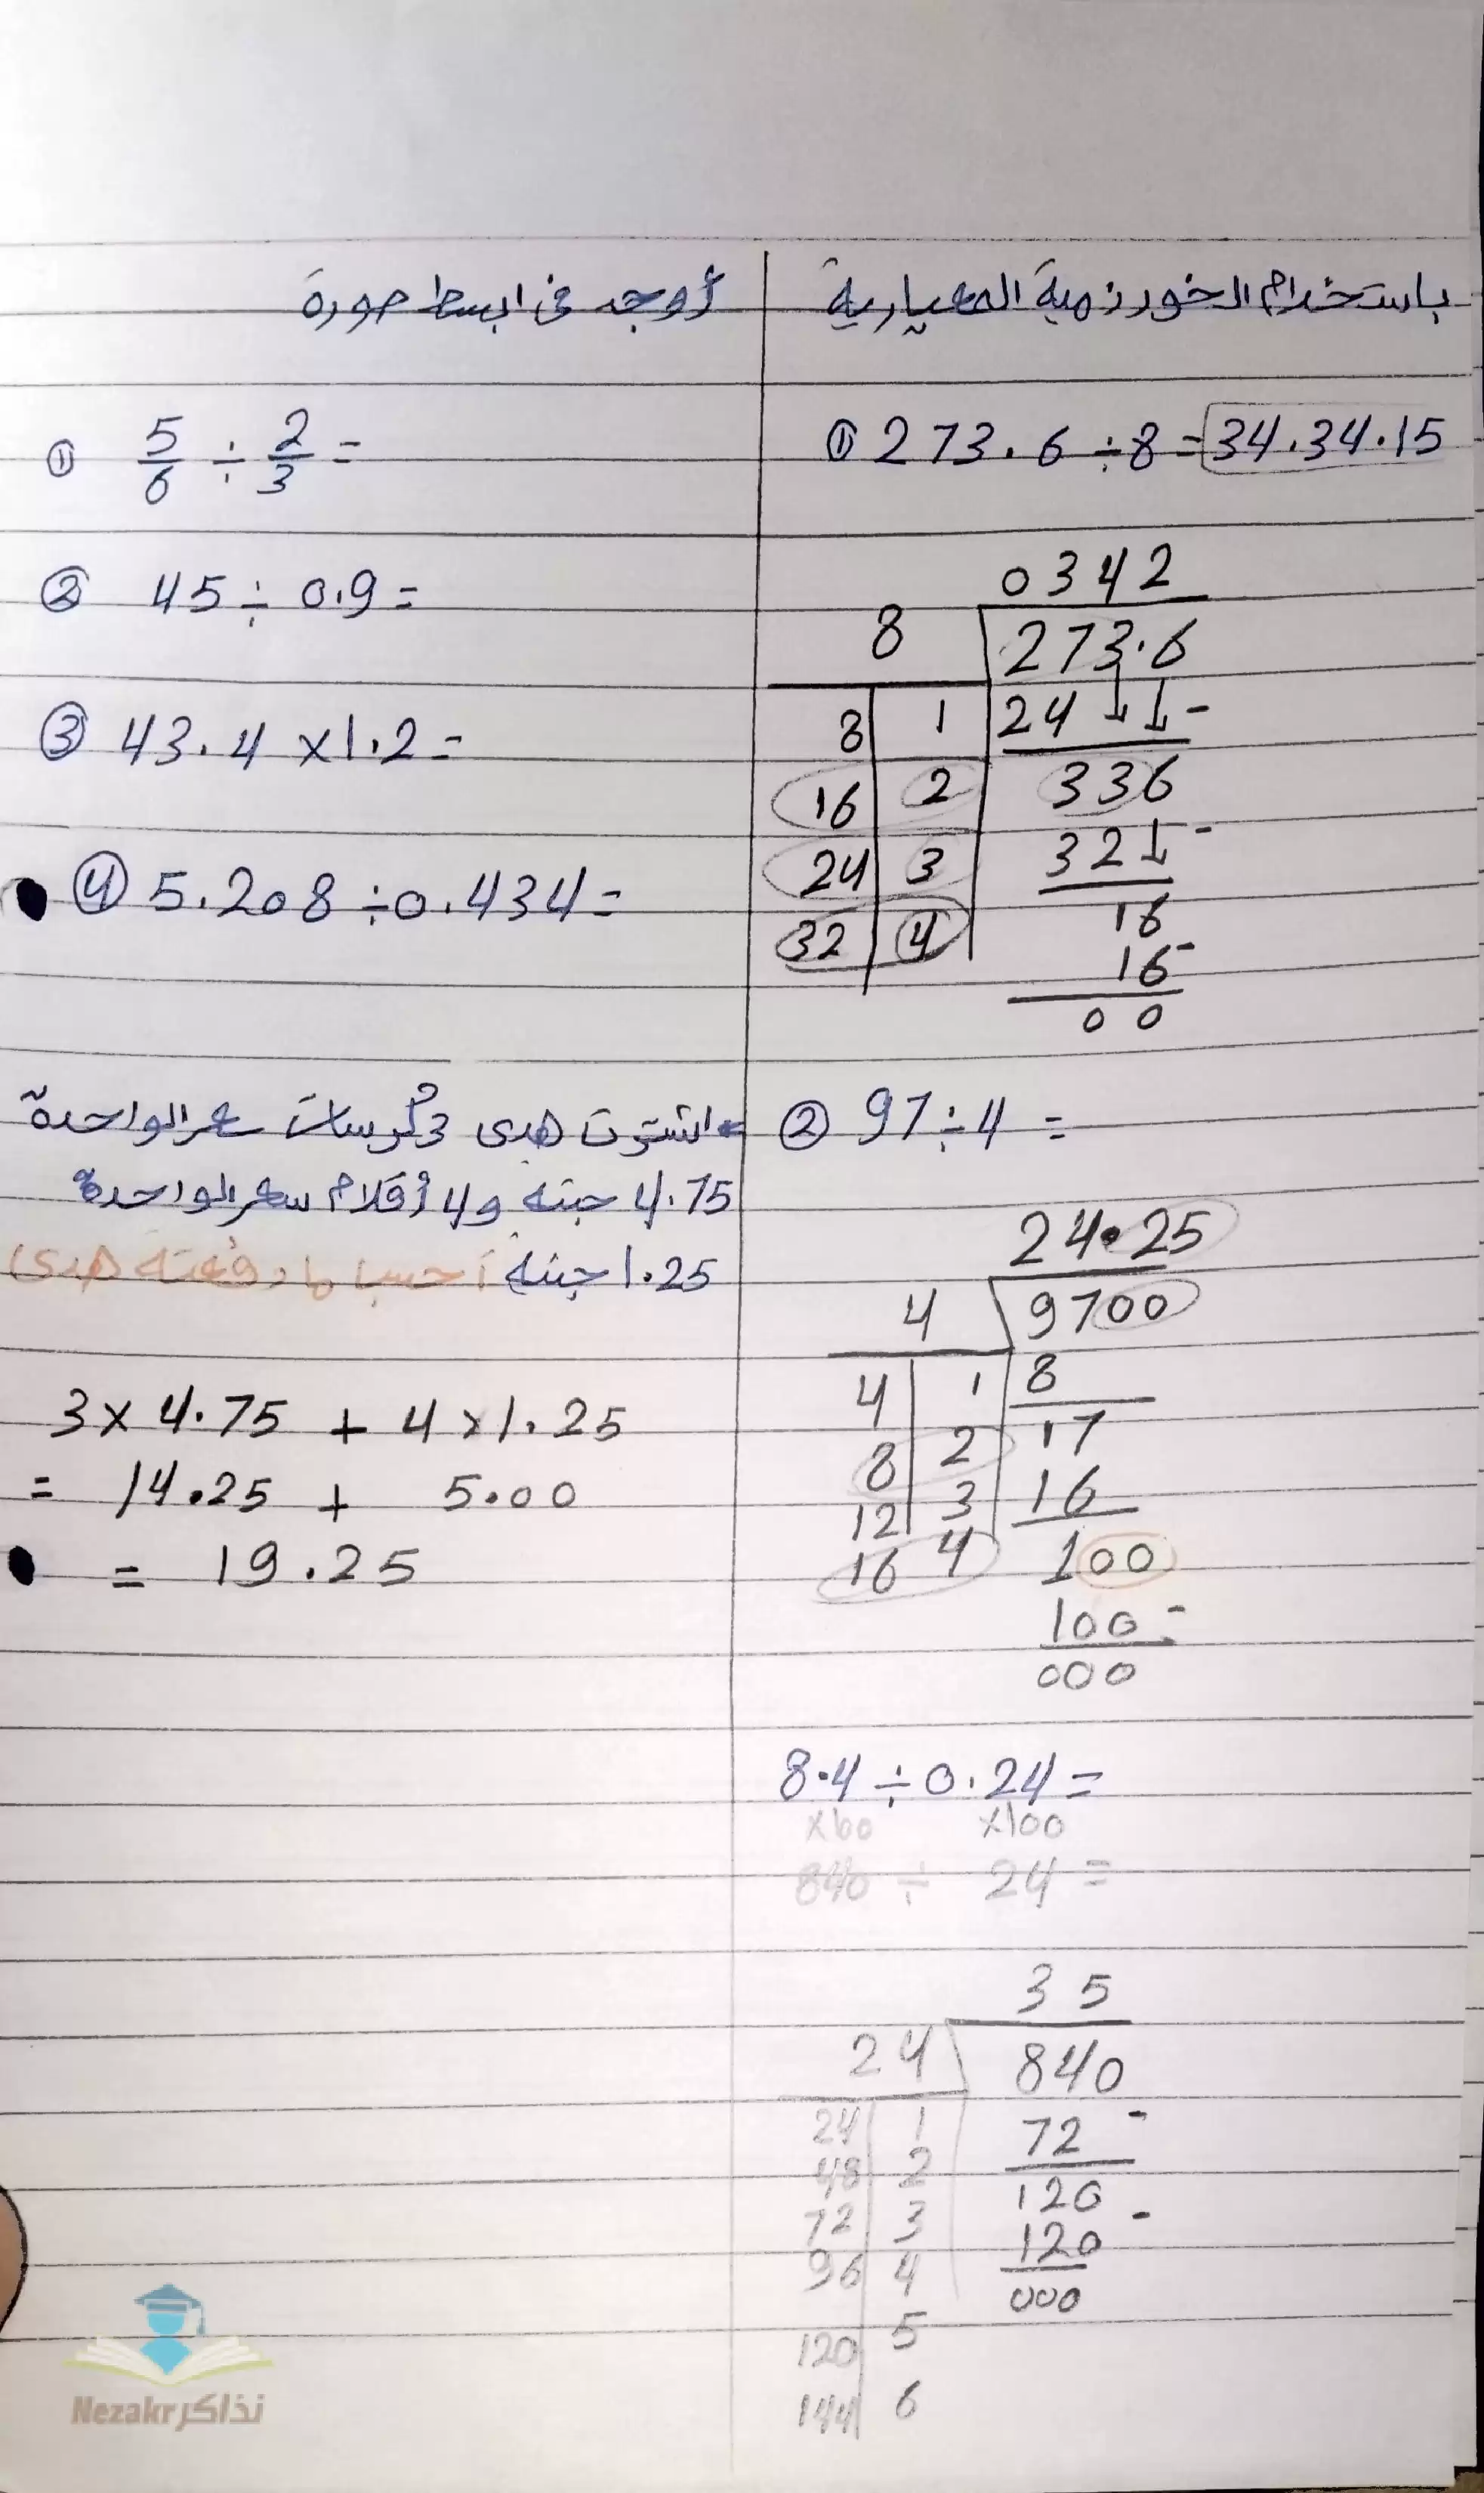 باستخدام الخورزمية المعيارية
① 273.6 ÷ 8 = 34.34.15
0342
8 273.6
8 1 24 -
16 2 336
24 3 32 -
32 4 16
16 -
00
② 97 ÷ 4 =
24.25
4 9700
4 1 8
8 2 17
12 3 16
16 4 100
100 -
000
8.4 ÷ 0.24 =
×100 ×100
840 ÷ 24 =
35
24 840
24 1 72 -
48 2 120
72 3 120 -
96 4 000
120 5
144 6
أوجد في ابسط صورة
① 5/6 ÷ 2/3 =
② 45 ÷ 0.9 =
③ 43.4 × 1.2 =
④ 5.208 ÷ 0.434 =
اشترت هدى 3 كرسات سعر الواحدة
4.75 جنيه و 4 أقلام سعر الواحدة
1.25 جنيه أحسب ما دفعته هدى
3 × 4.75 + 4 × 1.25
= 14.25 + 5.00
= 19.25
Nezakr نذاكر